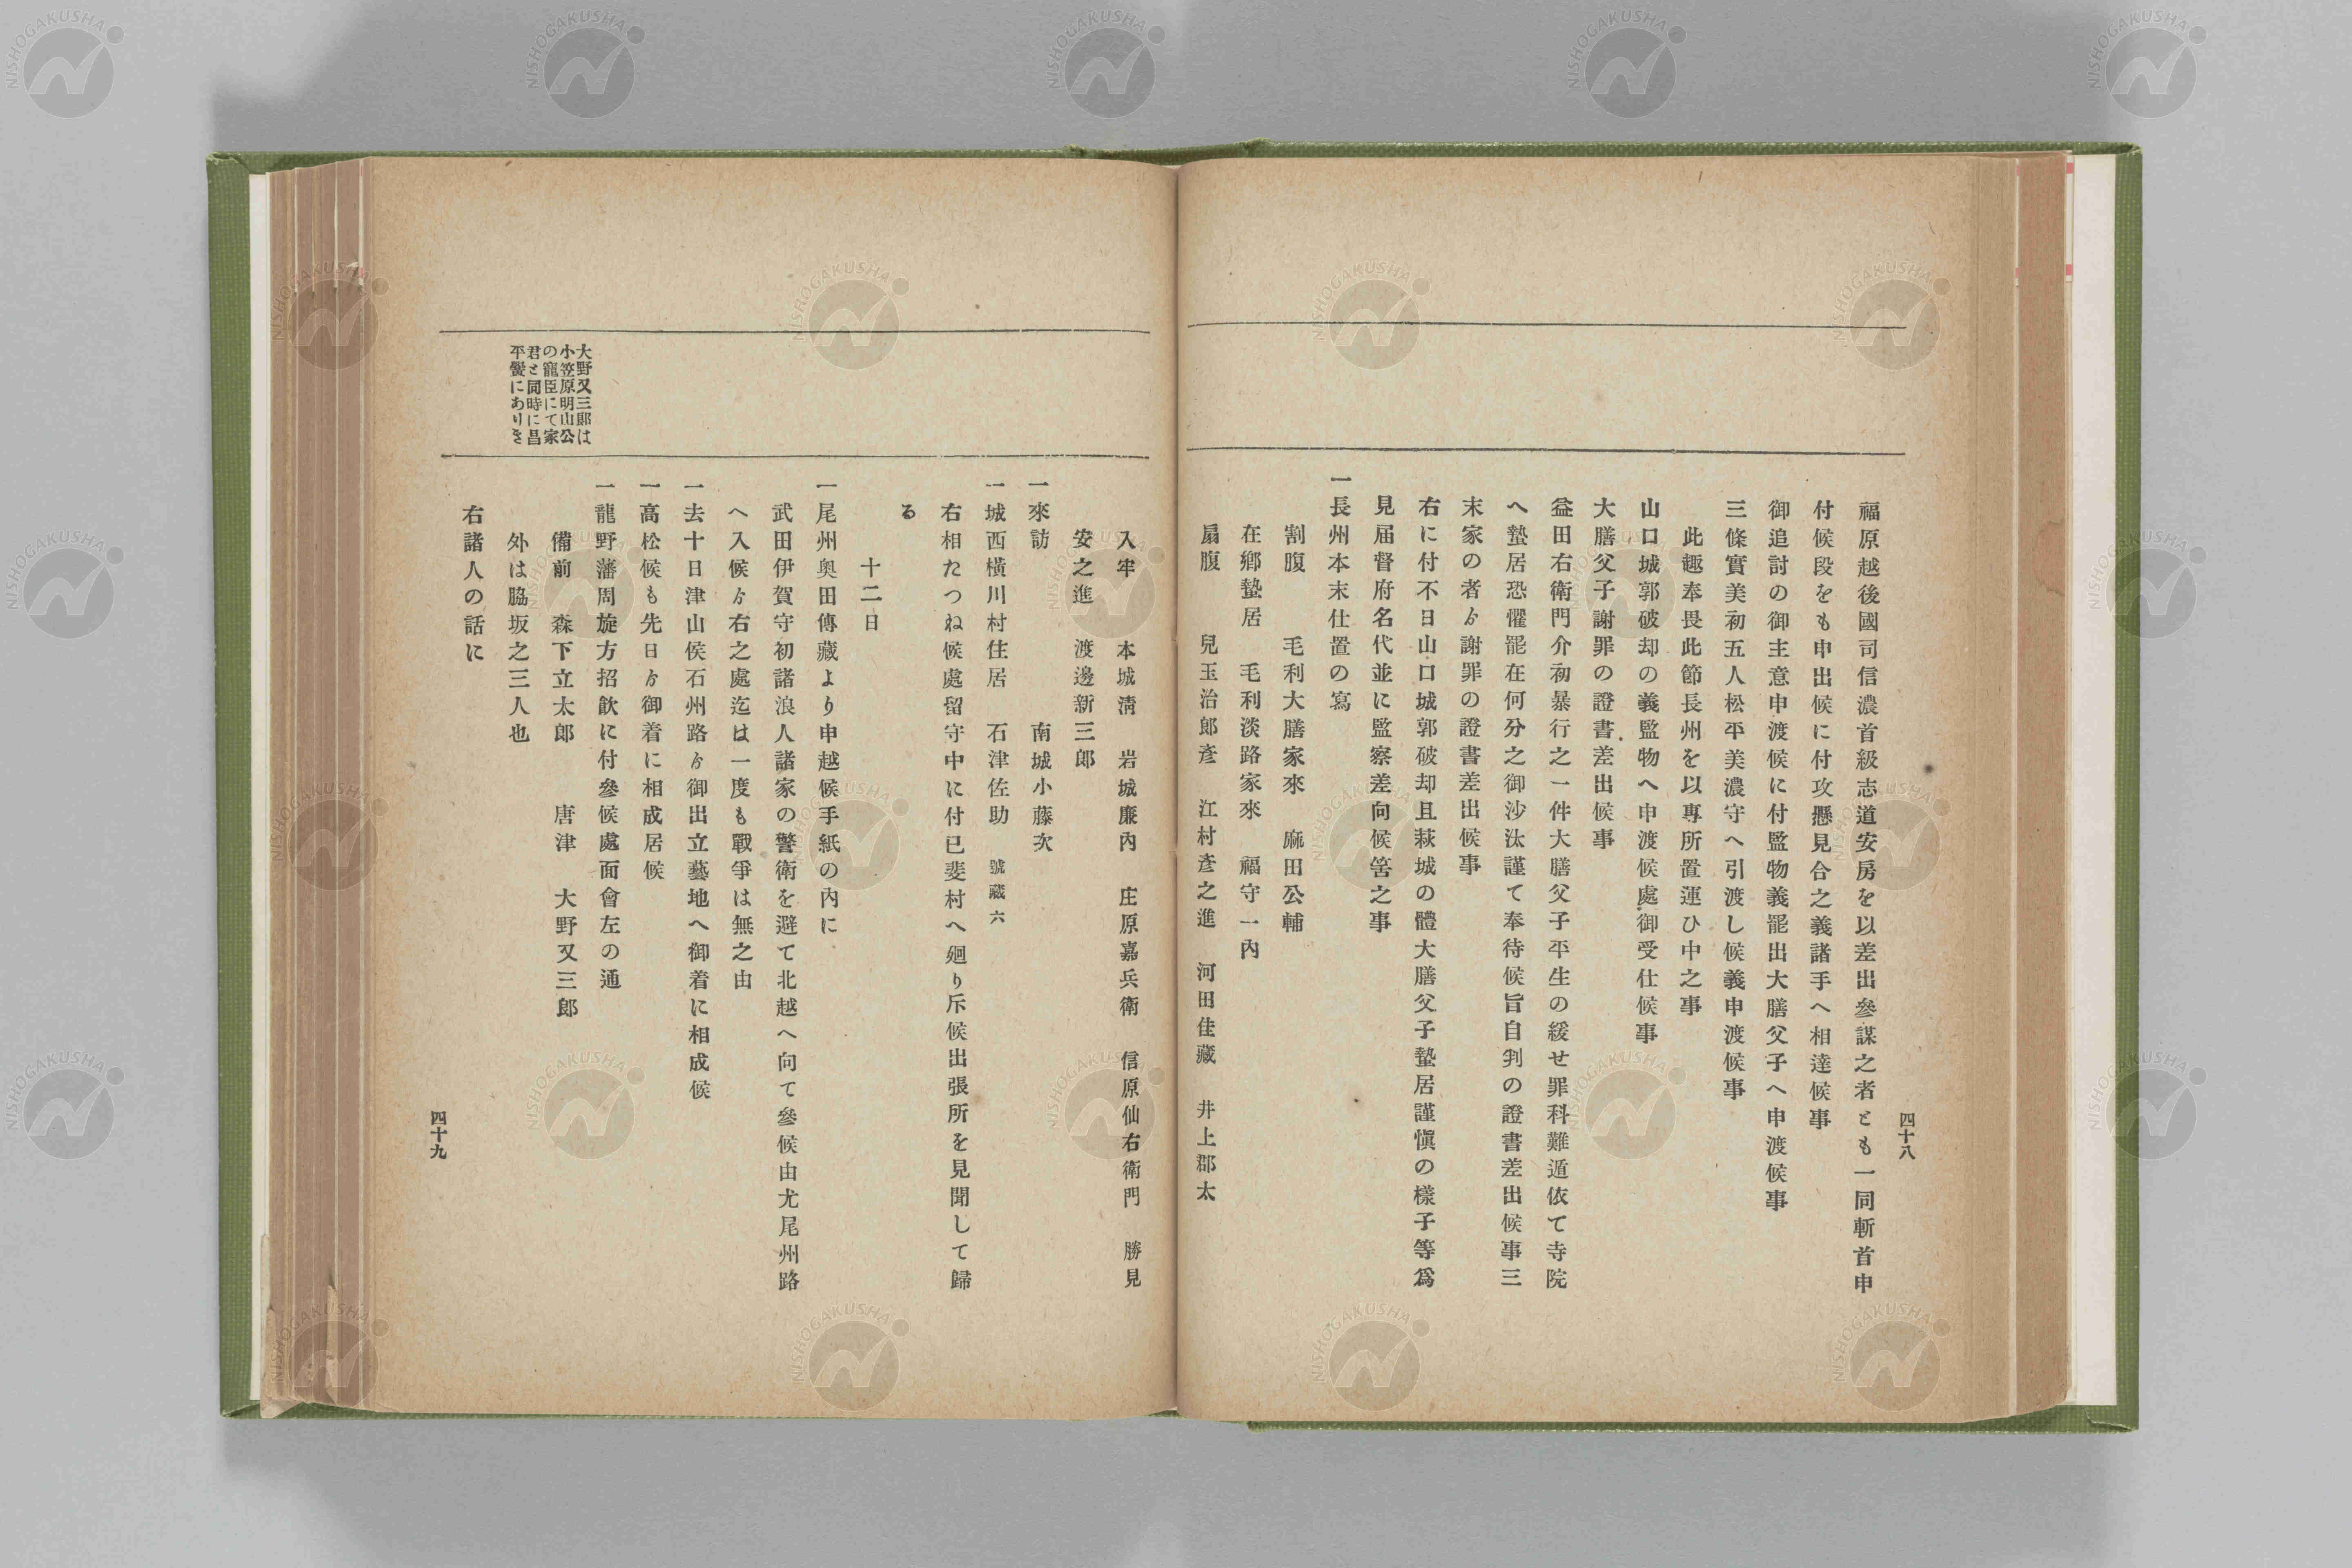 四十八
福原越後國司信濃首級志道安房を以差出參謀之者とも一同斬首申
付候段をも申出候に付攻懸見合之義諸手へ相達候事
御追討の御主意申渡候に付監物義罷出大膳父子へ申渡候事
三條實美初五人松平美濃守へ引渡し候義申渡候事
此趣奉畏此節長州を以專所置運ひ中之事
山口城郭破却の義監物へ申渡候處御受仕候事
大膳父子謝罪の證書差出候事
益田右衛門介初暴行之一件大膳父子平生の緩せ罪科難遁依て寺院
へ蟄居恐懼罷在何分之御沙汰謹て奉待候旨自判の證書差出候事三
末家の者ゟ謝罪の證書差出候事
右に付不日山口城郭破却且萩城の體大膳父子蟄居謹愼の樣子等爲
見届督府名代並に監察差向候筈之事
一長州本末仕置の寫
割腹 毛利大膳家來 麻田公輔
在鄉蟄居 毛利淡路家來 福守一內
扇腹 兒玉治郎彥 江村彥之進 河田佳藏 井上郡太
入牢 本城淸 岩城廉內 庄原嘉兵衛 信原仙右衛門 勝見
安之進 渡邊新三郎
一來訪 南城小藤次
一城西橫川村住居 石津佐助 號藏六
右相たつね候處留守中に付已斐村へ廻り斥候出張所を見聞して歸
る
十二日
一尾州奥田傳藏より申越候手紙の內に
武田伊賀守初諸浪人諸家の警衛を避て北越へ向て參候由尤尾州路
へ入候ゟ右之處迄は一度も戰爭は無之由
一去十日津山侯石州路ゟ御出立藝地へ御着に相成候
一高松候も先日ゟ御着に相成居候
一龍野藩周旋方招飮に付參候處面會左の通
備前 森下立太郎 唐津 大野又三郎
外は脇坂之三人也
右諸人の話に
大野又三郎は
小笠原明山公
の寵臣にて家
君と同時に昌
平黌にありき
四十九
NISHOGAKUSHA